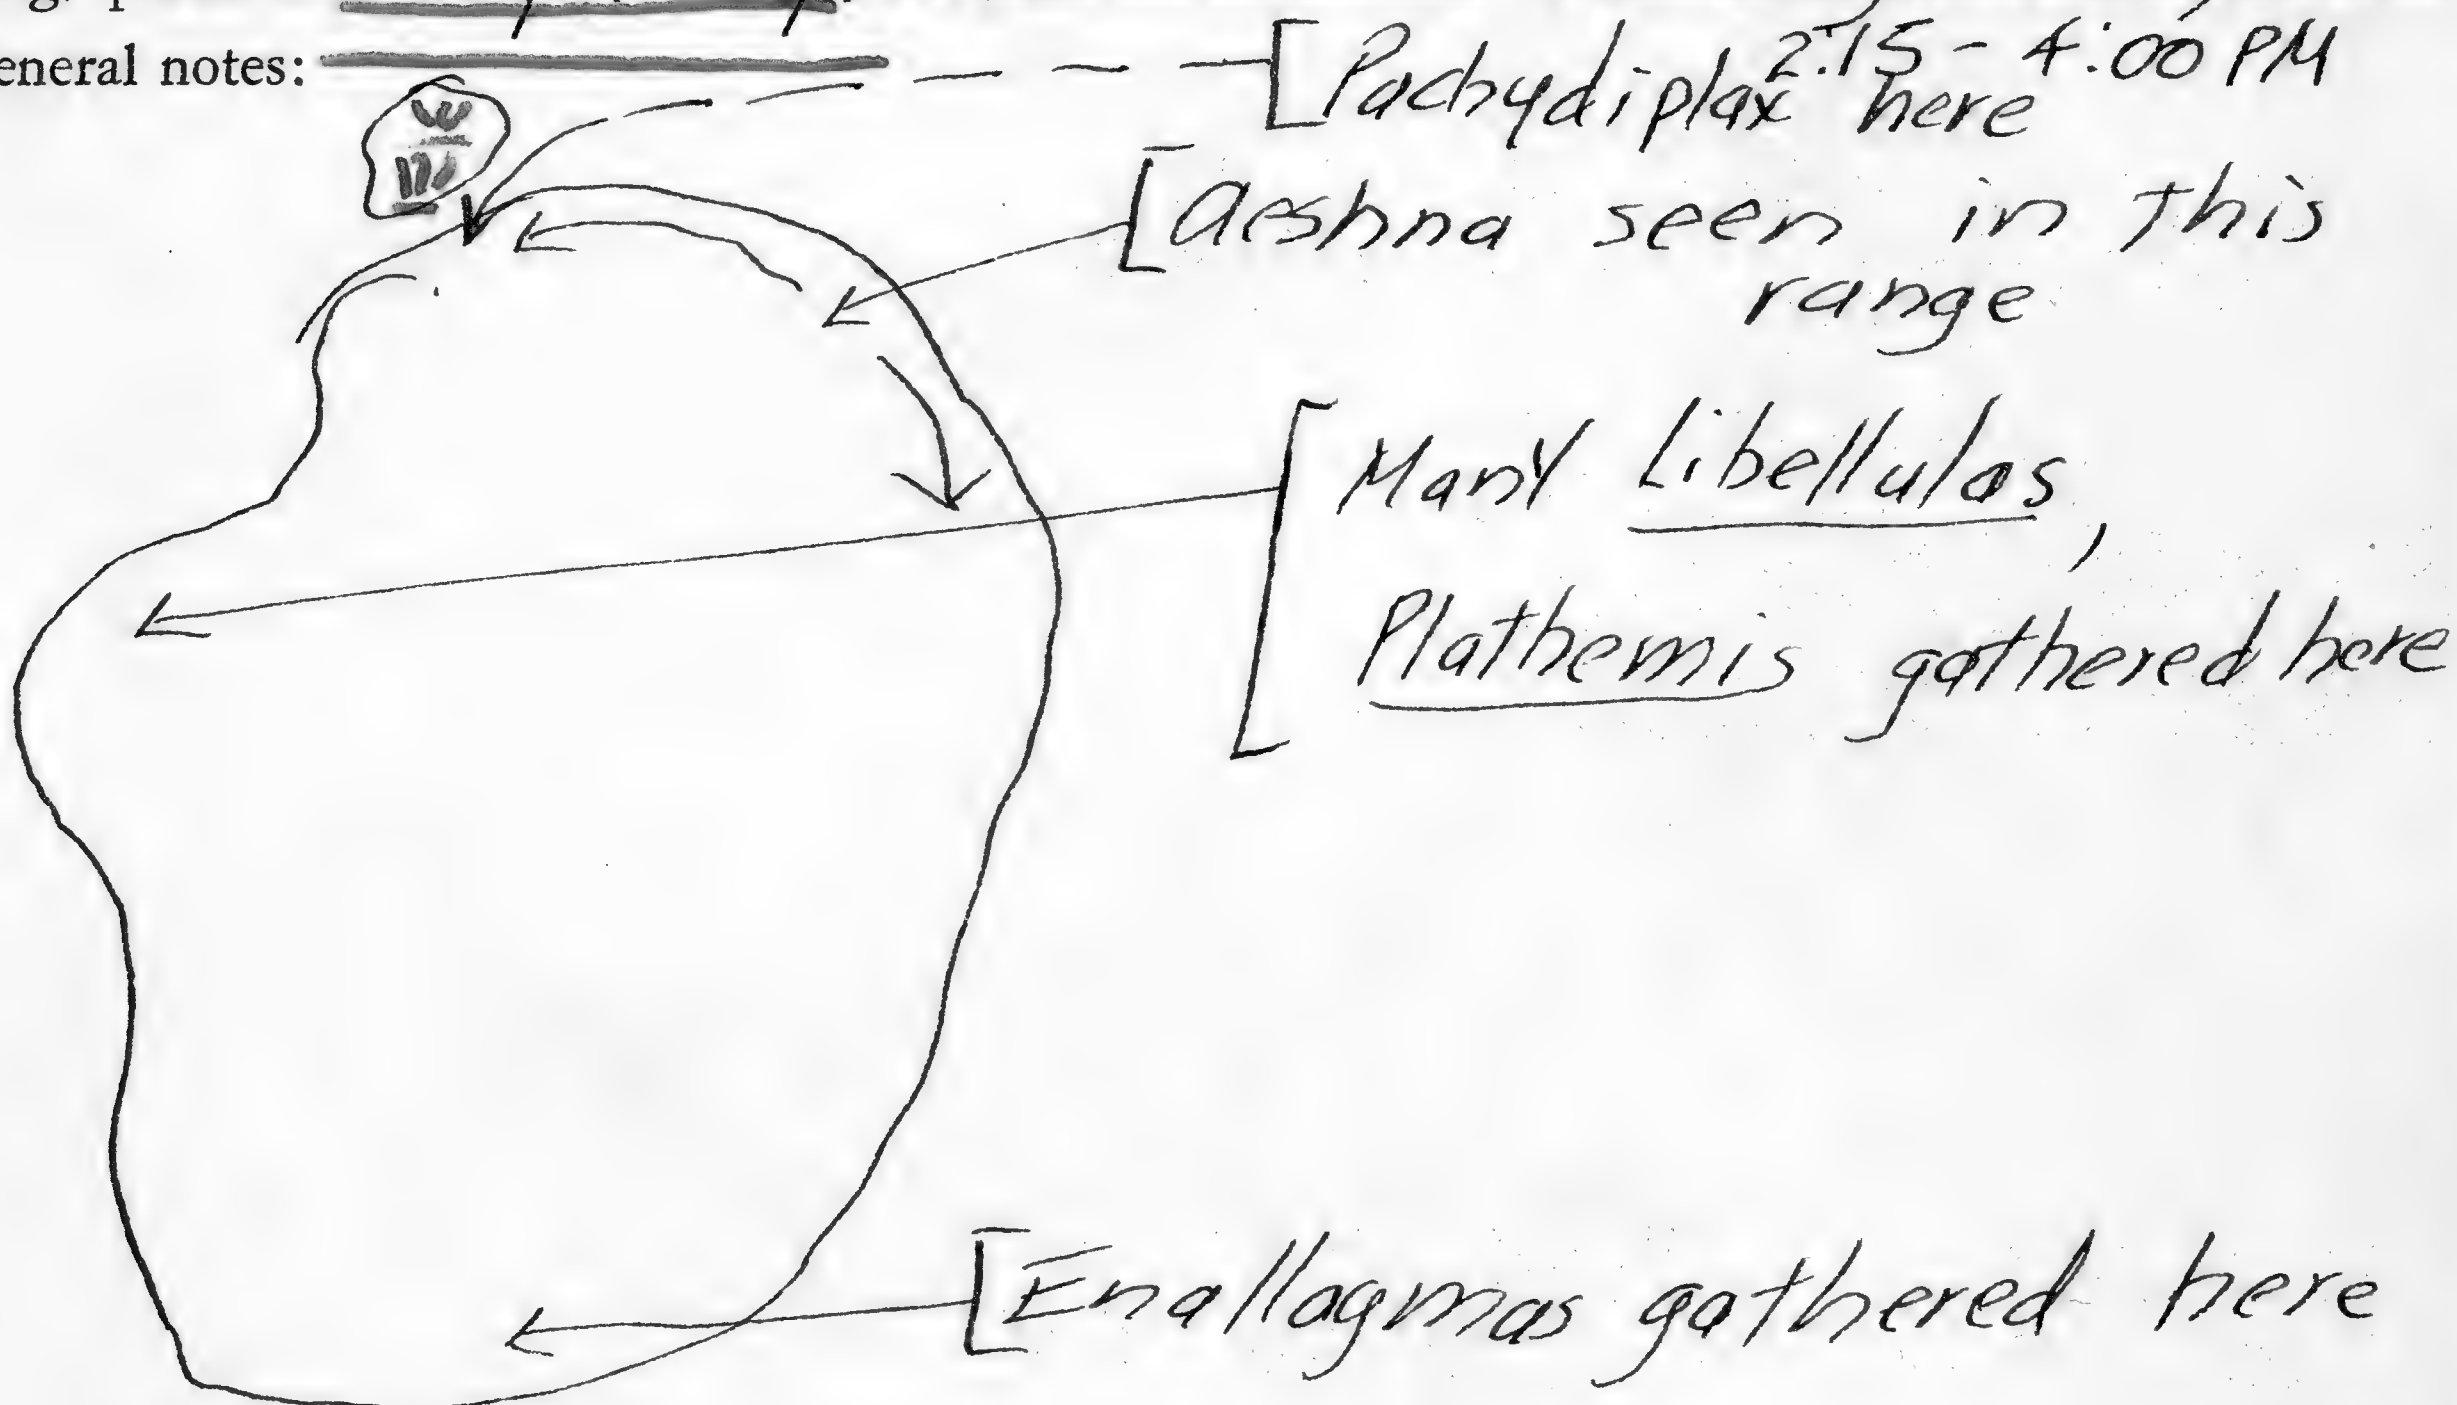 eneral notes:
2:15 - 4:00 PM
Pachydiplax here
Aeshna seen in this
range
Many Libellulas,
Plathemis gathered here
Enallagmas gathered here